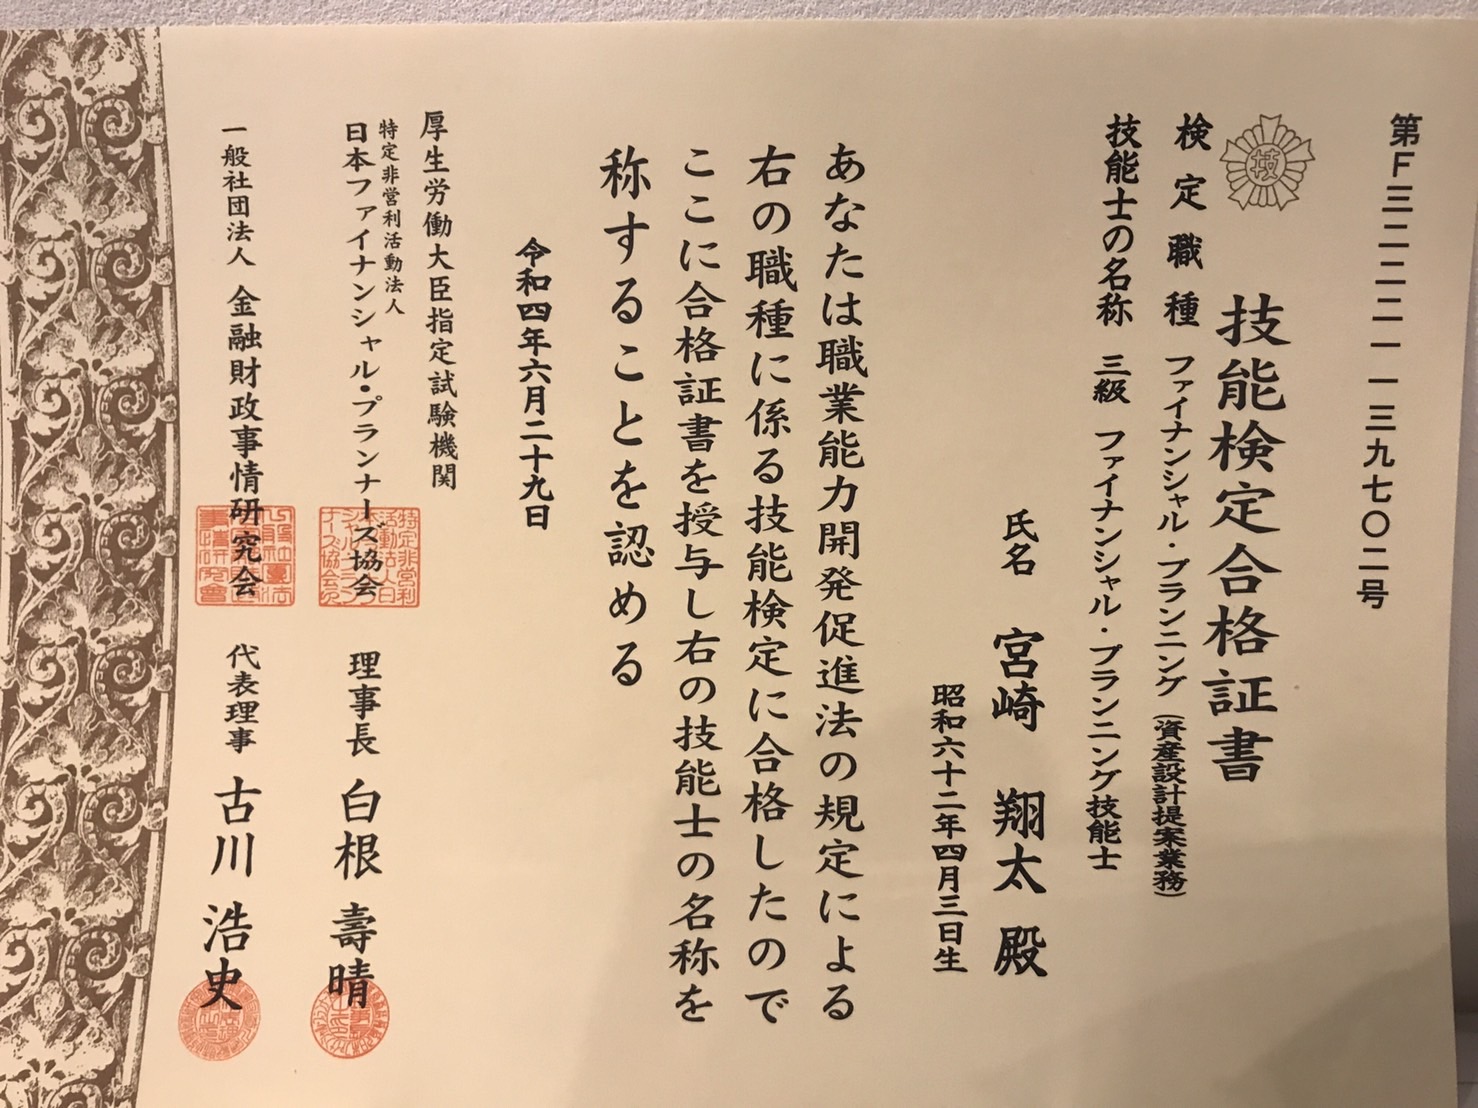 第F三二二二一一三九七〇二号
技能検定合格証書
技
検定職種 ファイナンシャル・プランニング(資産設計提案業務)
技能士の名称 三級 ファイナンシャル・プランニング技能士
氏名 宮崎 翔太 殿
昭和六十二年四月三日生
あなたは職業能力開発促進法の規定による
右の職種に係る技能検定に合格したので
ここに合格証書を授与し右の技能士の名称を
称することを認める
令和四年六月二十九日
厚生労働大臣指定試験機関
特定非営利活動法人
日本ファイナンシャル・プランナーズ協会 理事長 白根 壽晴
一般社団法人 金融財政事情研究会 代表理事 古川 浩史